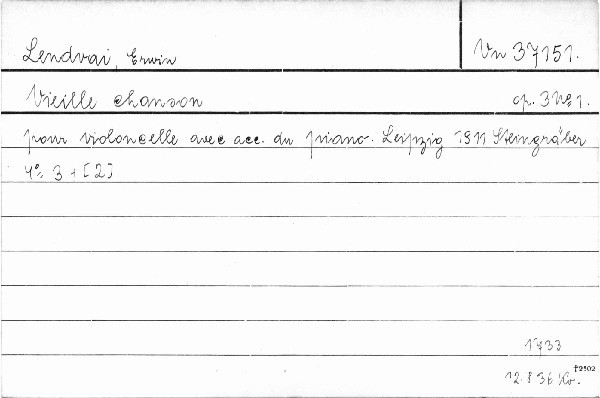 Lendvai, Erwin
Vn 37151.
Vieille chanson op. 3 No 1.
pour violoncelle avec acc. du piano. Leipzig 1911 Steingräber
4º: 3 + [2]
1733
†2502
12.836 Kv.